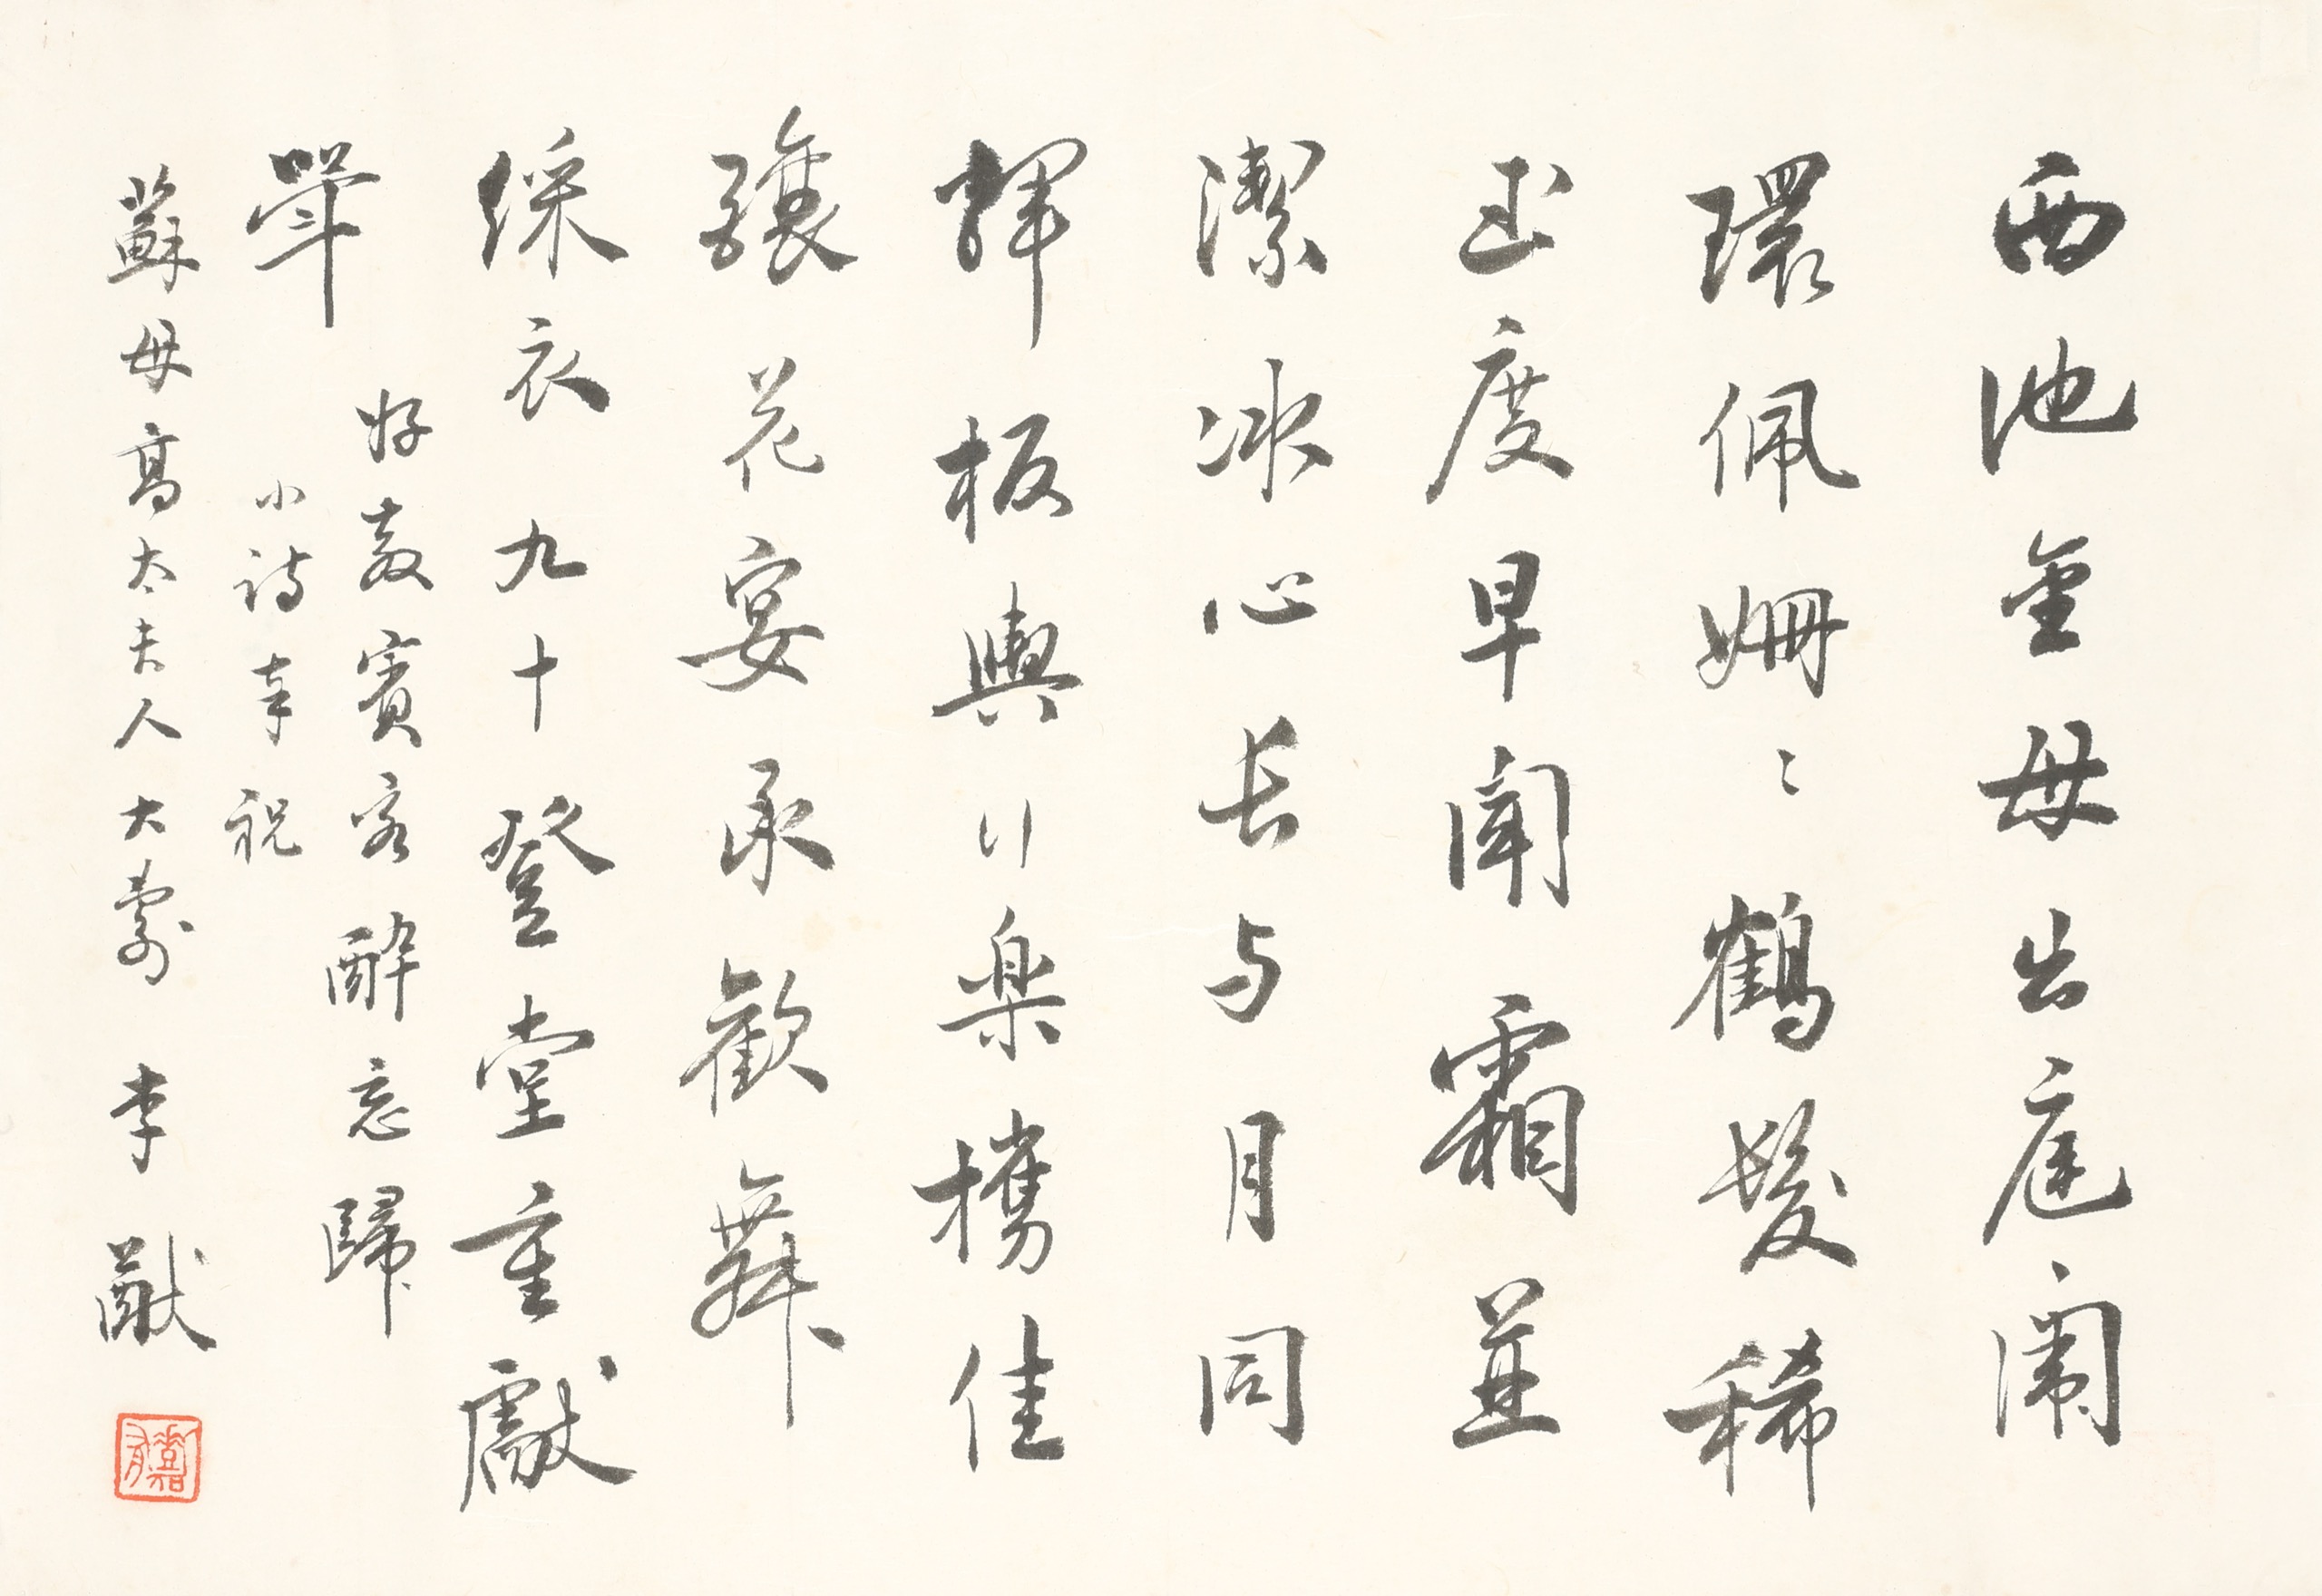 西池金母出庭闈
環佩姍〻鶴髮稀
玉度早聞霜並
潔冰心長与月同
輝板輿行楽攜佳
釀花宴承歡舞
綵衣九十登堂重獻
斝 好教賓客醉忘歸
小詩奉祝
蘇母高太夫人大壽 李猷
嘉有